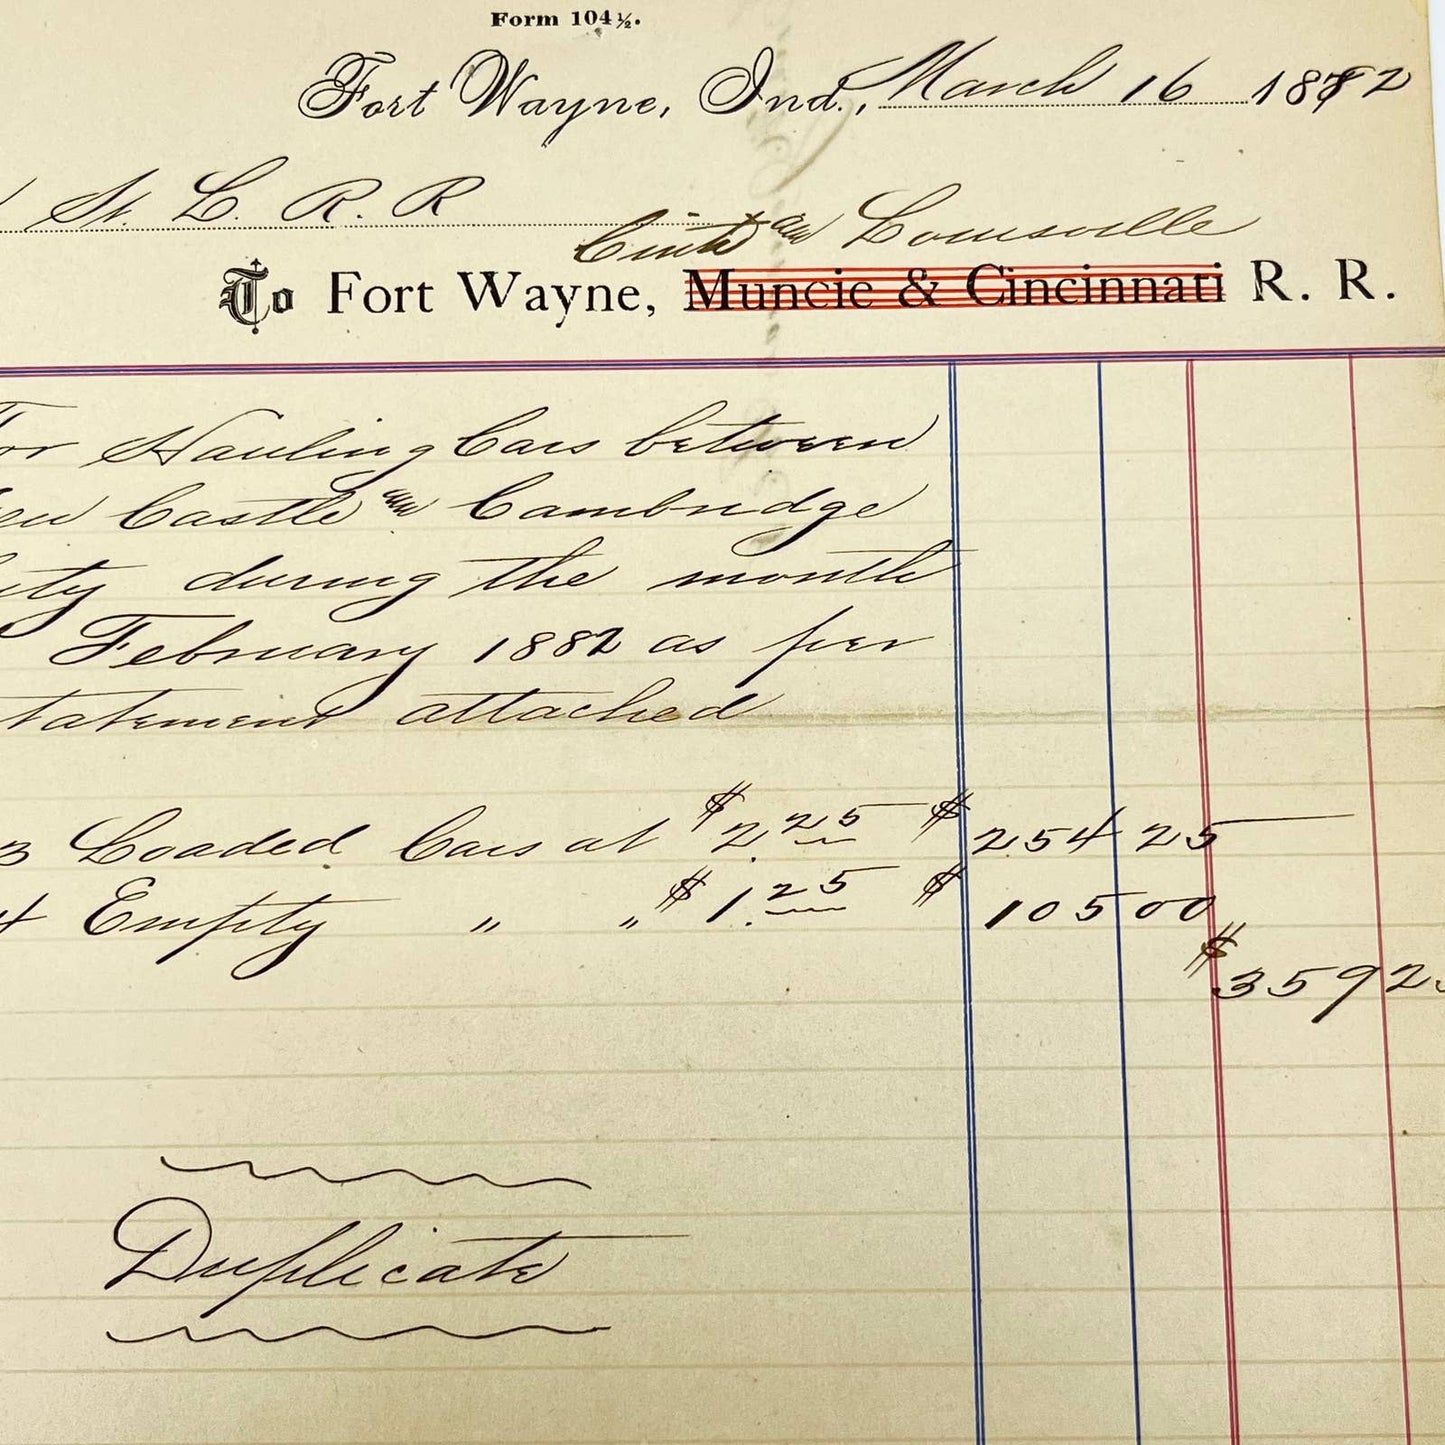 Form 104½.
Fort Wayne, Ind., March 16 1882
St. L. R. R
Cinti and Louisville
To Fort Wayne, Muncie & Cincinnati R. R.
For Hauling Cars between
New Castle and Cambridge
City during the month
February 1882 as per
tatement attached
3 Loaded Cars at $2.25 $254 25
4 Empty " " $1.25 $105 00
$359 2
Duplicate